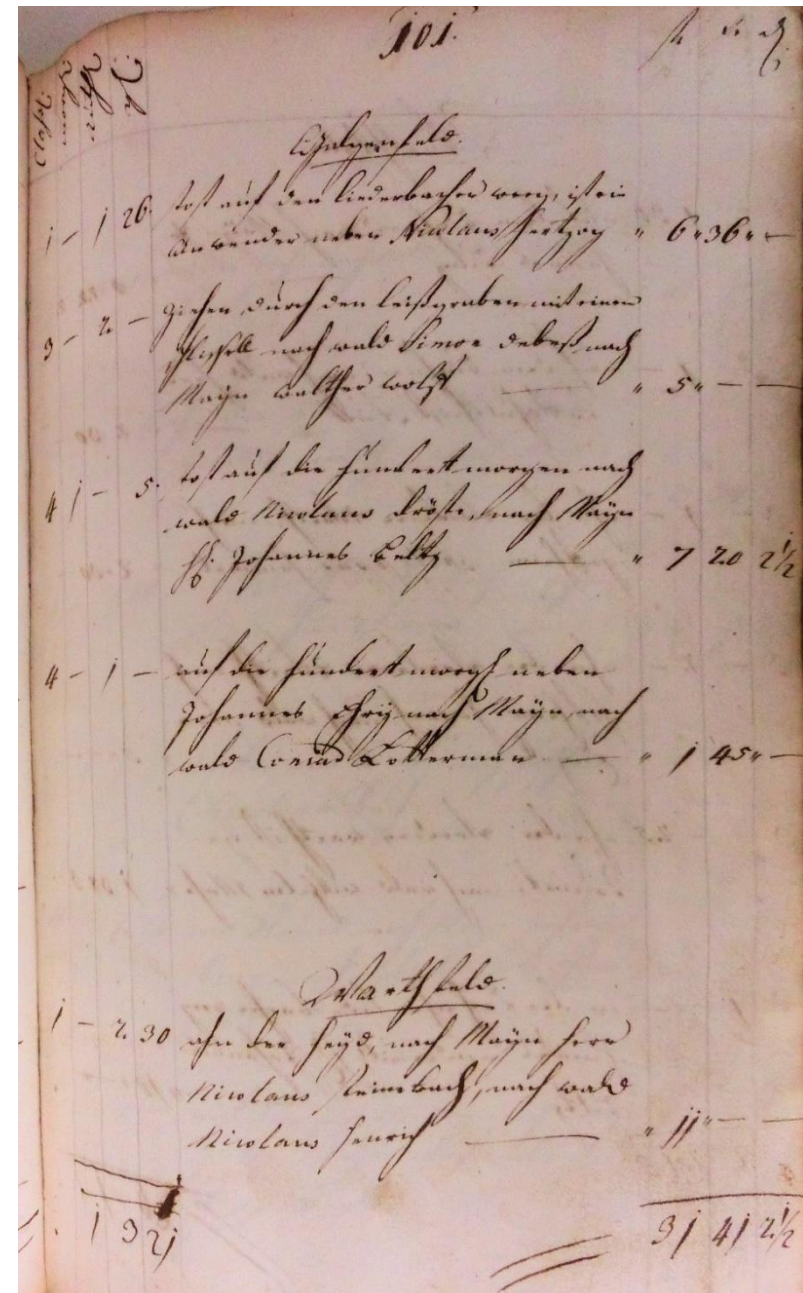 101.
Galgenfeld.
1 - 1 26. stost auf den liederbacher weeg, ist ein
anwender neben Niclaus Hertzog " 6 " 36 " —
3 - 2 - ziehen durch den leißgraben mit einem
nach wald Simon nach
Mayn Walther Wolff — " 5 " — —
4 1 - 5. stost auf die hundert morgen nach
wald Nicolaus Kröste, nach Mayn
H. Johannes Beltz — " 7 20 2 1/2
4 - 1 - auf die hundert morgen neben
Johannes nach Mayn, nach
wald Conrad Kotterman — " 1 45 " —
Warthfeld.
1 - 2. 30 ahn der Heyd, nach Mayn Herr
Nicolaus Steinebach, nach wald
Nicolaus Henrich — " 11 " — —
1 3 21
31 41 2 1/2